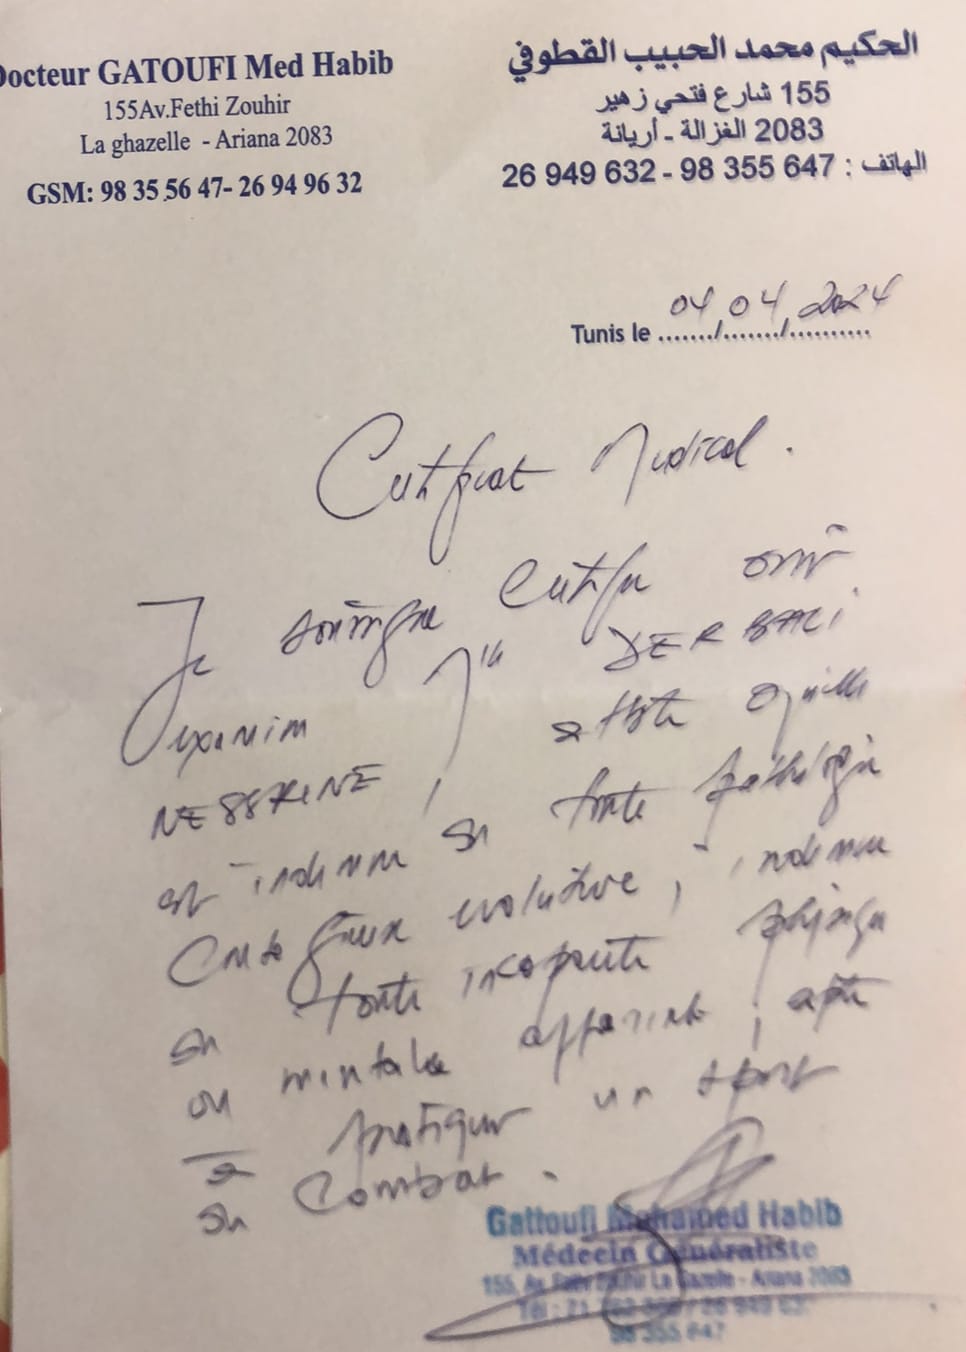 Docteur GATOUFI Med Habib
155Av.Fethi Zouhir
La ghazelle - Ariana 2083
GSM: 98 35 56 47- 26 94 96 32
الحكيم محمد الحبيب القطوفي
155 شارع فتحي زهير
2083 الغزالة - أريانة
الهاتف : 647 355 98 - 632 949 26
Tunis le 04/04/2024
Certificat Médical.
Je soussigné certifie avoir
examiné Mlle DERBALI
NESSRINE, atteste qu'elle
est indemne de toute pathologie
contagieuse évolutive, indemne
de toute incapacité physique
ou mentale apparente, apte
à pratiquer un sport
de Combat.
Gattoufi Mohamed Habib
Médecin Généraliste
155, Av. Fethi Zouhir La Gazelle - Ariana 2083
Tél : 71 / 26 949 63
98 355 647